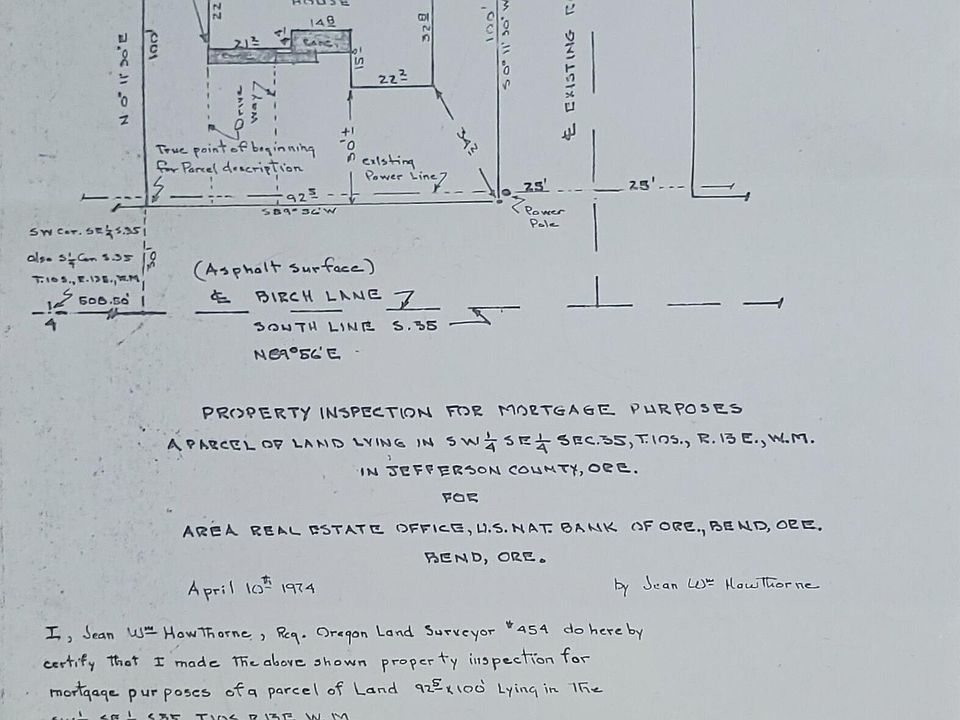 HOUSE
22
14⁸
21²
4'
15⁰
32⁸
22²
N 0° 11' 30" E
100'
100'
S 0° 11' 30" W
℄ EXISTING
Drive
way
50'±
True point of beginning
for Parcel description
existing
Power Line
92⁵
S 89° 56' W
25'
25'
Power
Pole
SW Cor. SE¼ S.35
also S¼ Cor. S.35
T.10S., R.13E., W.M.
¼
508.50'
30'
(Asphalt surface)
℄ BIRCH LANE
SOUTH LINE S.35
N89°56'E
PROPERTY INSPECTION FOR MORTGAGE PURPOSES
A PARCEL OF LAND LYING IN SW¼ SE¼ SEC.35, T.10S., R.13E., W.M.
IN JEFFERSON COUNTY, ORE.
FOR
AREA REAL ESTATE OFFICE, U.S. NAT. BANK OF ORE., BEND, ORE.
BEND, ORE.
April 10th 1974
by Jean Wm Hawthorne
I, Jean Wm Hawthorne, Reg. Oregon Land Surveyor #454 do hereby
certify that I made the above shown property inspection for
mortgage purposes of a parcel of Land 92⁵ x 100' Lying in The
SW¼ SE¼ S35 T10S R13E W.M.